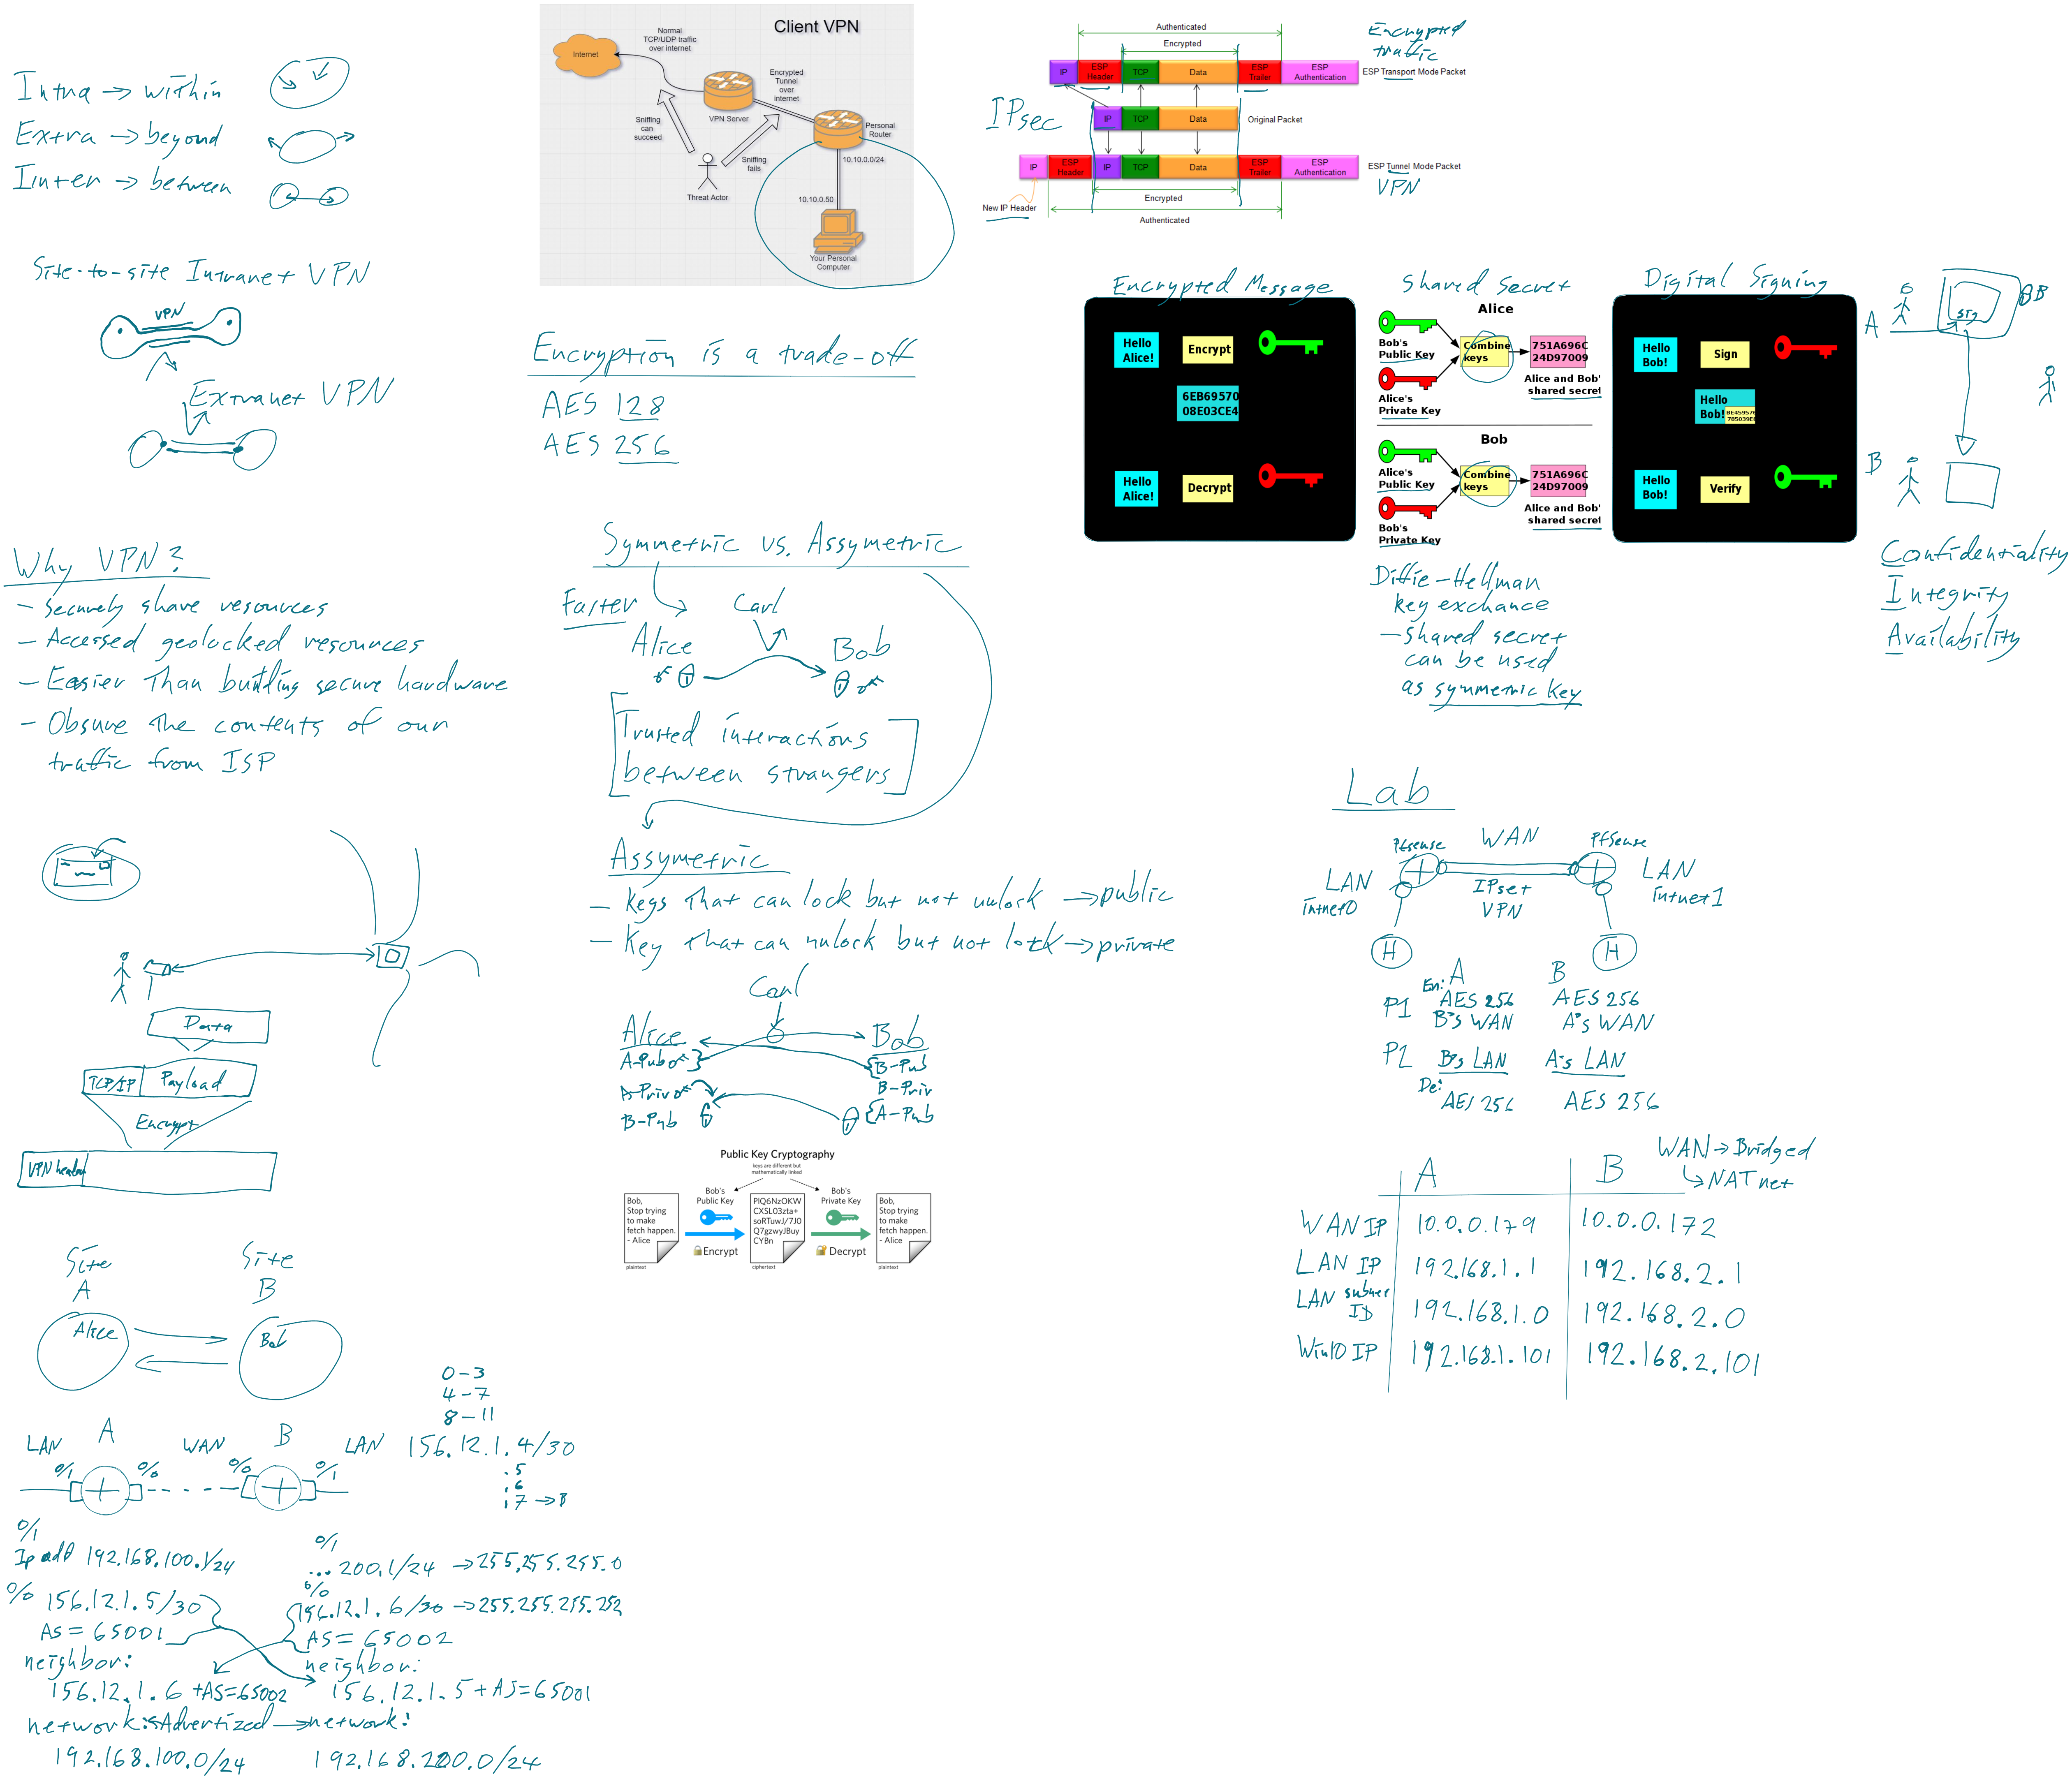 Intra → within
Extra → beyond
Inter → between
Site-to-site Intranet VPN
VPN
Extranet VPN
Why VPN?
- Securely share resources
- Accessed geolocked resources
- Easier than building secure hardware
- Obsure the contents of our
traffic from ISP
Data
TCP/IP Payload
Encrypt
VPN header
Site
A
Site
B
Alice
Bob
LAN A WAN B LAN
0/1 0/0 0/0 0/1
0-3
4-7
8-11
156.12.1.4/30
.5
.6
.7 → B
0/1
Ip add 192.168.100.1/24
0/0 156.12.1.5/30
AS = 65001
neighbor:
156.12.1.6 + AS=65002
network: Advertized → network:
192.168.100.0/24
0/1
... 200.1/24 → 255.255.255.0
0/0
156.12.1.6/30 → 255.255.255.252
AS = 65002
neighbor:
156.12.1.5 + AS=65001
192.168.200.0/24
Client VPN
Internet
Normal
TCP/UDP traffic
over internet
Encrypted
Tunnel
over
internet
VPN Server
Personal
Router
Sniffing
can
succeed
Sniffing
fails
Threat Actor
10.10.0.0/24
10.10.0.50
Your Personal
Computer
Encryption is a trade-off
AES 128
AES 256
Symmetric vs. Assymetric
Faster
Carl
Alice
Bob
Trusted interactions
between strangers
Assymetric
- Keys that can lock but not unlock → public
- Key that can unlock but not lock → private
Carl
Alice
A-Pub
A-Priv
B-Pub
Bob
B-Pub
B-Priv
A-Pub
Public Key Cryptography
keys are different but
mathematically linked
Bob's
Public Key
Bob's
Private Key
Bob,
Stop trying
to make
fetch happen.
- Alice
plaintext
Encrypt
PIQ6NzOKW
CXSL03zta+
soRTuwJ/7J0
Q7gzwyJBuy
CYBn
ciphertext
Decrypt
Bob,
Stop trying
to make
fetch happen.
- Alice
plaintext
IPsec
Authenticated
Encrypted
Encrypted
traffic
IP
ESP
Header
TCP
Data
ESP
Trailer
ESP
Authentication
ESP Transport Mode Packet
IP
TCP
Data
Original Packet
IP
ESP
Header
IP
TCP
Data
ESP
Trailer
ESP
Authentication
ESP Tunnel Mode Packet
VPN
New IP Header
Encrypted
Authenticated
Encrypted Message
Hello
Alice!
Encrypt
6EB69570
08E03CE4
Hello
Alice!
Decrypt
Shared Secret
Alice
Bob's
Public Key
Alice's
Private Key
Combine
keys
751A696C
24D97009
Alice and Bob'
shared secret
Bob
Alice's
Public Key
Bob's
Private Key
Combine
keys
751A696C
24D97009
Alice and Bob'
shared secret
Digital Signing
Hello
Bob!
Sign
Hello
Bob!
Hello
Bob!
Verify
A
B
Diffie-Hellman
key exchange
- shared secret
can be used
as symmetric key
Confidentiality
Integrity
Availability
Lab
Pfsense
WAN
PfSense
LAN
intnet0
IPset
VPN
LAN
intnet1
H
H
A B
En:
P1 AES 256 AES 256
B's WAN A's WAN
P2 B's LAN A's LAN
De:
AES 256 AES 256
WAN → Bridged
↳ NAT net
A B
WAN IP 10.0.0.179 10.0.0.172
LAN IP 192.168.1.1 192.168.2.1
LAN subnet
ID 192.168.1.0 192.168.2.0
Win10 IP 192.168.1.101 192.168.2.101